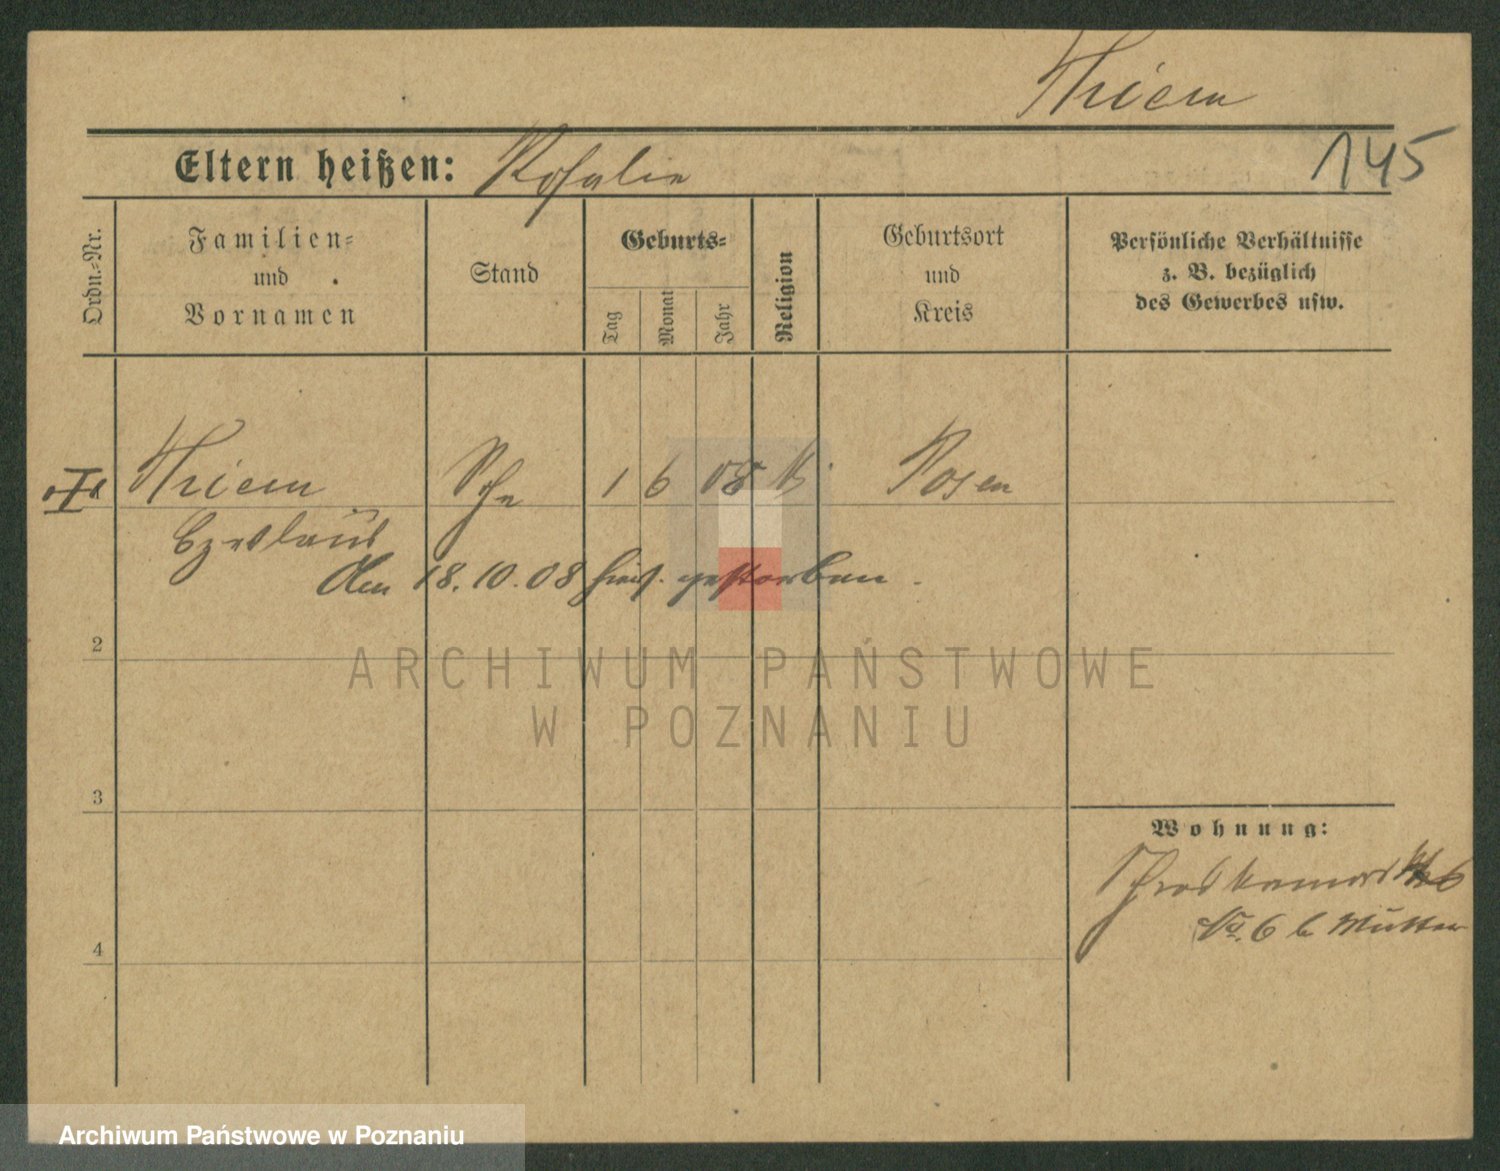 Thiem
145
Eltern heißen: Rosalie
Ordn.-Nr.
Familien-
und
Vornamen
Stand
Geburts-
Tag
Monat
Jahr
Religion
Geburtsort
und
Kreis
Persönliche Verhältnisse
z. B. bezüglich
des Gewerbes usw.
Thiem
1 6 08
Posen
Czeslaus
den 18.10.08 hier gestorben.
2
ARCHIWUM PAŃSTWOWE
W POZNANIU
3
Wohnung:
No. 6 b Mutter
4
Archiwum Państwowe w Poznaniu